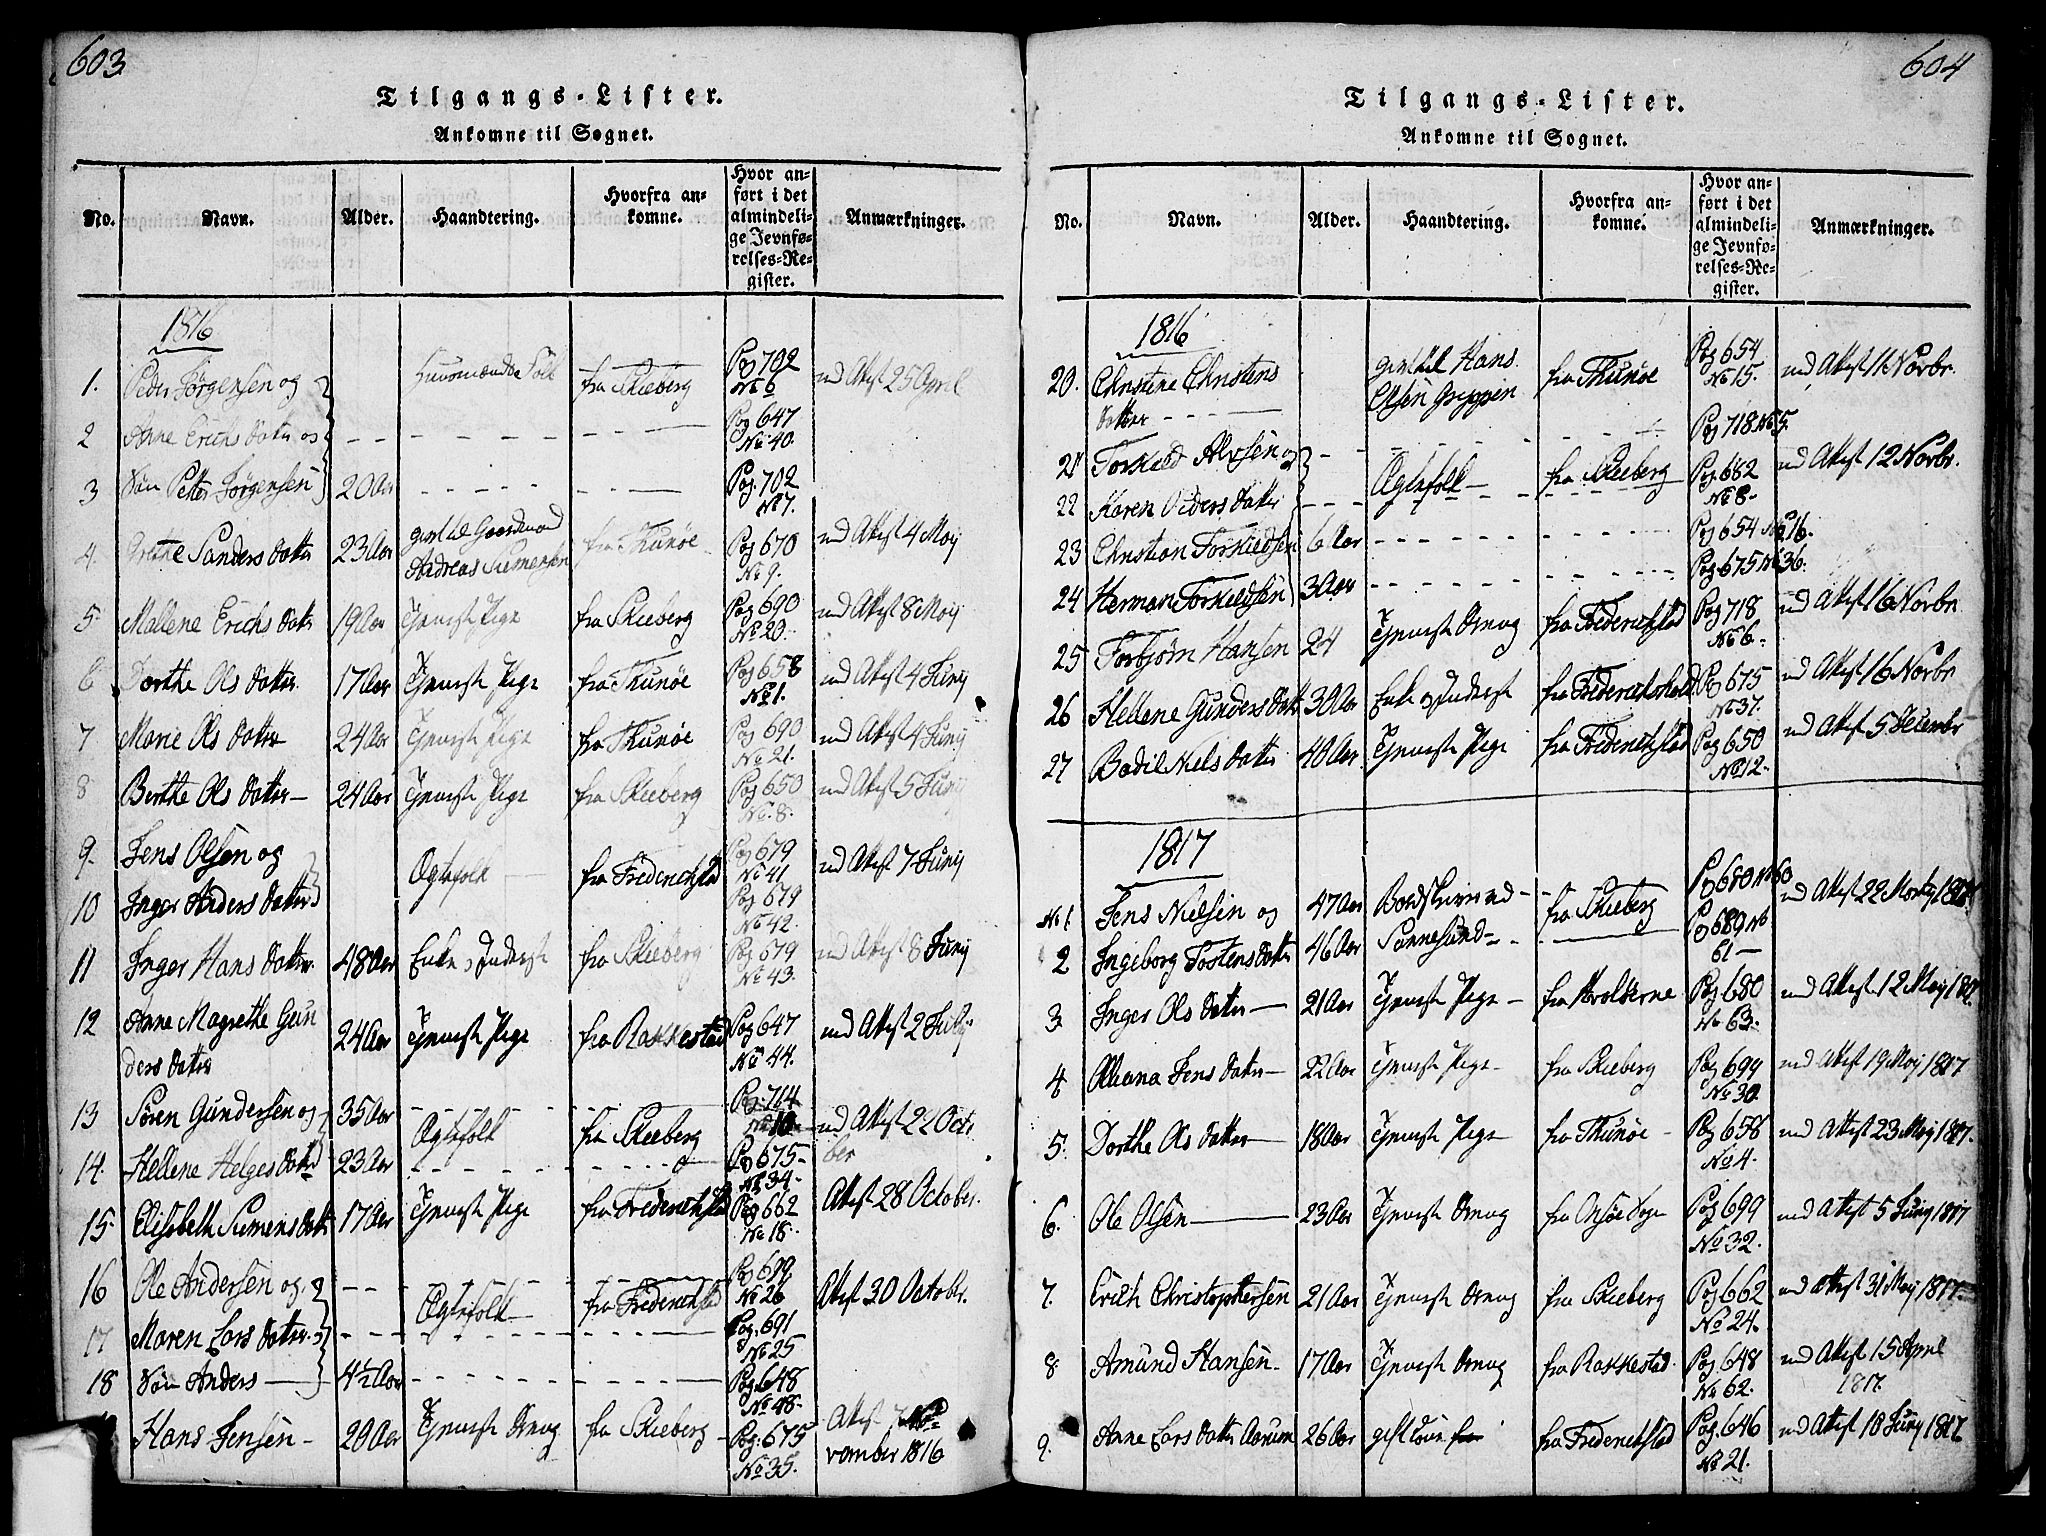 603
Tilgangs-Lister.
Ankomne til Sognet.
No. Navn. Alder. Haandtering. Hvorfra ankomne. Hvor anført i det almindelige Jevnførelses-Register. Anmærkninger.
1816
1. Peder Jörgensen og Huusmandsfolk fra Skieberg Pag 702 No 6 md Attest 25 April
2 Anne Erichsdatter og Pag 647 No 40.
3 Sön Petter Jörgensen 20 Aar Pag. 702 No 7.
4. Sandersdatter 23 Aar gaardmand Andreas Simensen fra Thunøe Pag 670 No 9. md Attest 4 Maij
5. Mallene Erichsdatter 19 Aar Tjeneste Pige fra Skieberg Pag 690 No 20. md Attest 8 Maij
6 Dorthe Olsdatter 17 Aar Tjeneste Pige fra Thunøe Pag 658 No 1. md Attest 4 Junij
7 Marie Olsdatter 24 Aar Tjeneste Pige fra Thunøe Pag 690 No 21. md Attest 4 Junij
8 Berthe Olsdatter 24 Aar Tjeneste Pige fra Skieberg Pag 650 No. 8. md Attest 5 Junij
9. Jens Olsen og Ægtefolk fra Friderichstad Pag 679 No 41 md Attest 7 Junij
10 Inger Andersdatter Pag 679 No 42.
11 Inger Hansdatter 48 Aar Enke og Inderste fra Skieberg Pag 679 No 43. md Attest 8 Junij
12 Anne Magrethe Gundersdatter 24 Aar Tjeneste Pige fra Rakkestad Pag 647 No 44. md Attest 2 Julij
13 Sören Gundersen og 35 Aar Ægtefolk fra Skieberg Pag. 714 No 10 md Attest 22 October
14. Hellene Helgesdatter 23 Aar Pag 675 No 34
15. Elisabeth Simensdatter 17 Aar Tjeneste Pige fra Frederichstad Pag 662 No 18. Attest 28 October.
16 Ole Andersen og Ægtefolk fra Frederichstad Pag 699 No 26 Attest 30 Octobr.
17 Maren Larsdatter Pag. 691 No 25
18 Sön Anders 4½ Aar Pag. 648 No 48.
Hans Jensen 20 Aar Tjeneste Dreng fra Skieberg Pag. 675 No 35. Attest 7 November 1816
604
Tilgangs-Lister.
Ankomne til Sognet.
No. Navn. Alder. Haandtering. Hvorfra ankomne. Hvor anført i det almindelige Jevnførelses-Register. Anmærkninger.
1816
20. Christine Christensdatter gift til Hans Olsen Greppen fra Thunøe Pag 654 No 15. md Attest 11 Novbr.
21 Torkild Alvsen og Ægtefolk fra Skieberg Pag 718 No 5. md Attest 12 Novbr.
22 Karen Pedersdatter Pag. 682 No 8
23 Christian Torkildsen 6 Aar Pag 654 No 16.
24 Herman Torkildsen 3 Aar Pag. 675 No 36.
25 Torbjørn Hansen 24 Tjeneste Dreng fra Frederichstad Pag 718 No 6. md Attest 16 Novbr
26 Hellene Gundersdatter 30 Aar Enke og Inderst fra Frederichshald Pag 675 No 37. md Attest 16 Novbr
27 Bodil Nielsdatter 40 Aar Tjeneste Pige fra Frederichstad Pag 650 No 12. md Attest 5 Decembr
1817
No 1. Jens Nielsen og 47 Aar fra Skieberg Pag 680 No 60 md Attest 22 Martz 1817
2 Ingeborg Tostensdatter 46 Aar Sannesund Pag 680 No 61
3. Inger Olsdatter 21 Aar Tjeneste Pige Pag. 680 No 63. md Attest 12 Maij 1817
4 Jensdatter 22 Aar Tjeneste Pige fra Skieberg Pag 699 No 30. md Attest 19 Maij 1817
5. Dorthe Olsdatter 18 Aar Tjeneste Pige fra Thunøe Pag 658 No 4. md Attest 23 Maij 1817.
6. Ole Olsen 23 Aar Tjeneste Dreng fra Onsöe Sogn Pag 699 No 32. md Attest 5 Junij 1817
7. Erich Christophersen 21 Aar Tjeneste Dreng fra Skieberg Pag 662 No 24. md Attest 31 Maij 1817.
8. Amund Hansen 17 Aar Tjeneste Dreng fra Rakkestad Pag. 648 No 62. md Attest 15 April 1817.
9. Anne Larsdatter Aarum 26 Aar gift fra Frederichstad Pag. 646 No 21. md Attest 18 Junij 1817